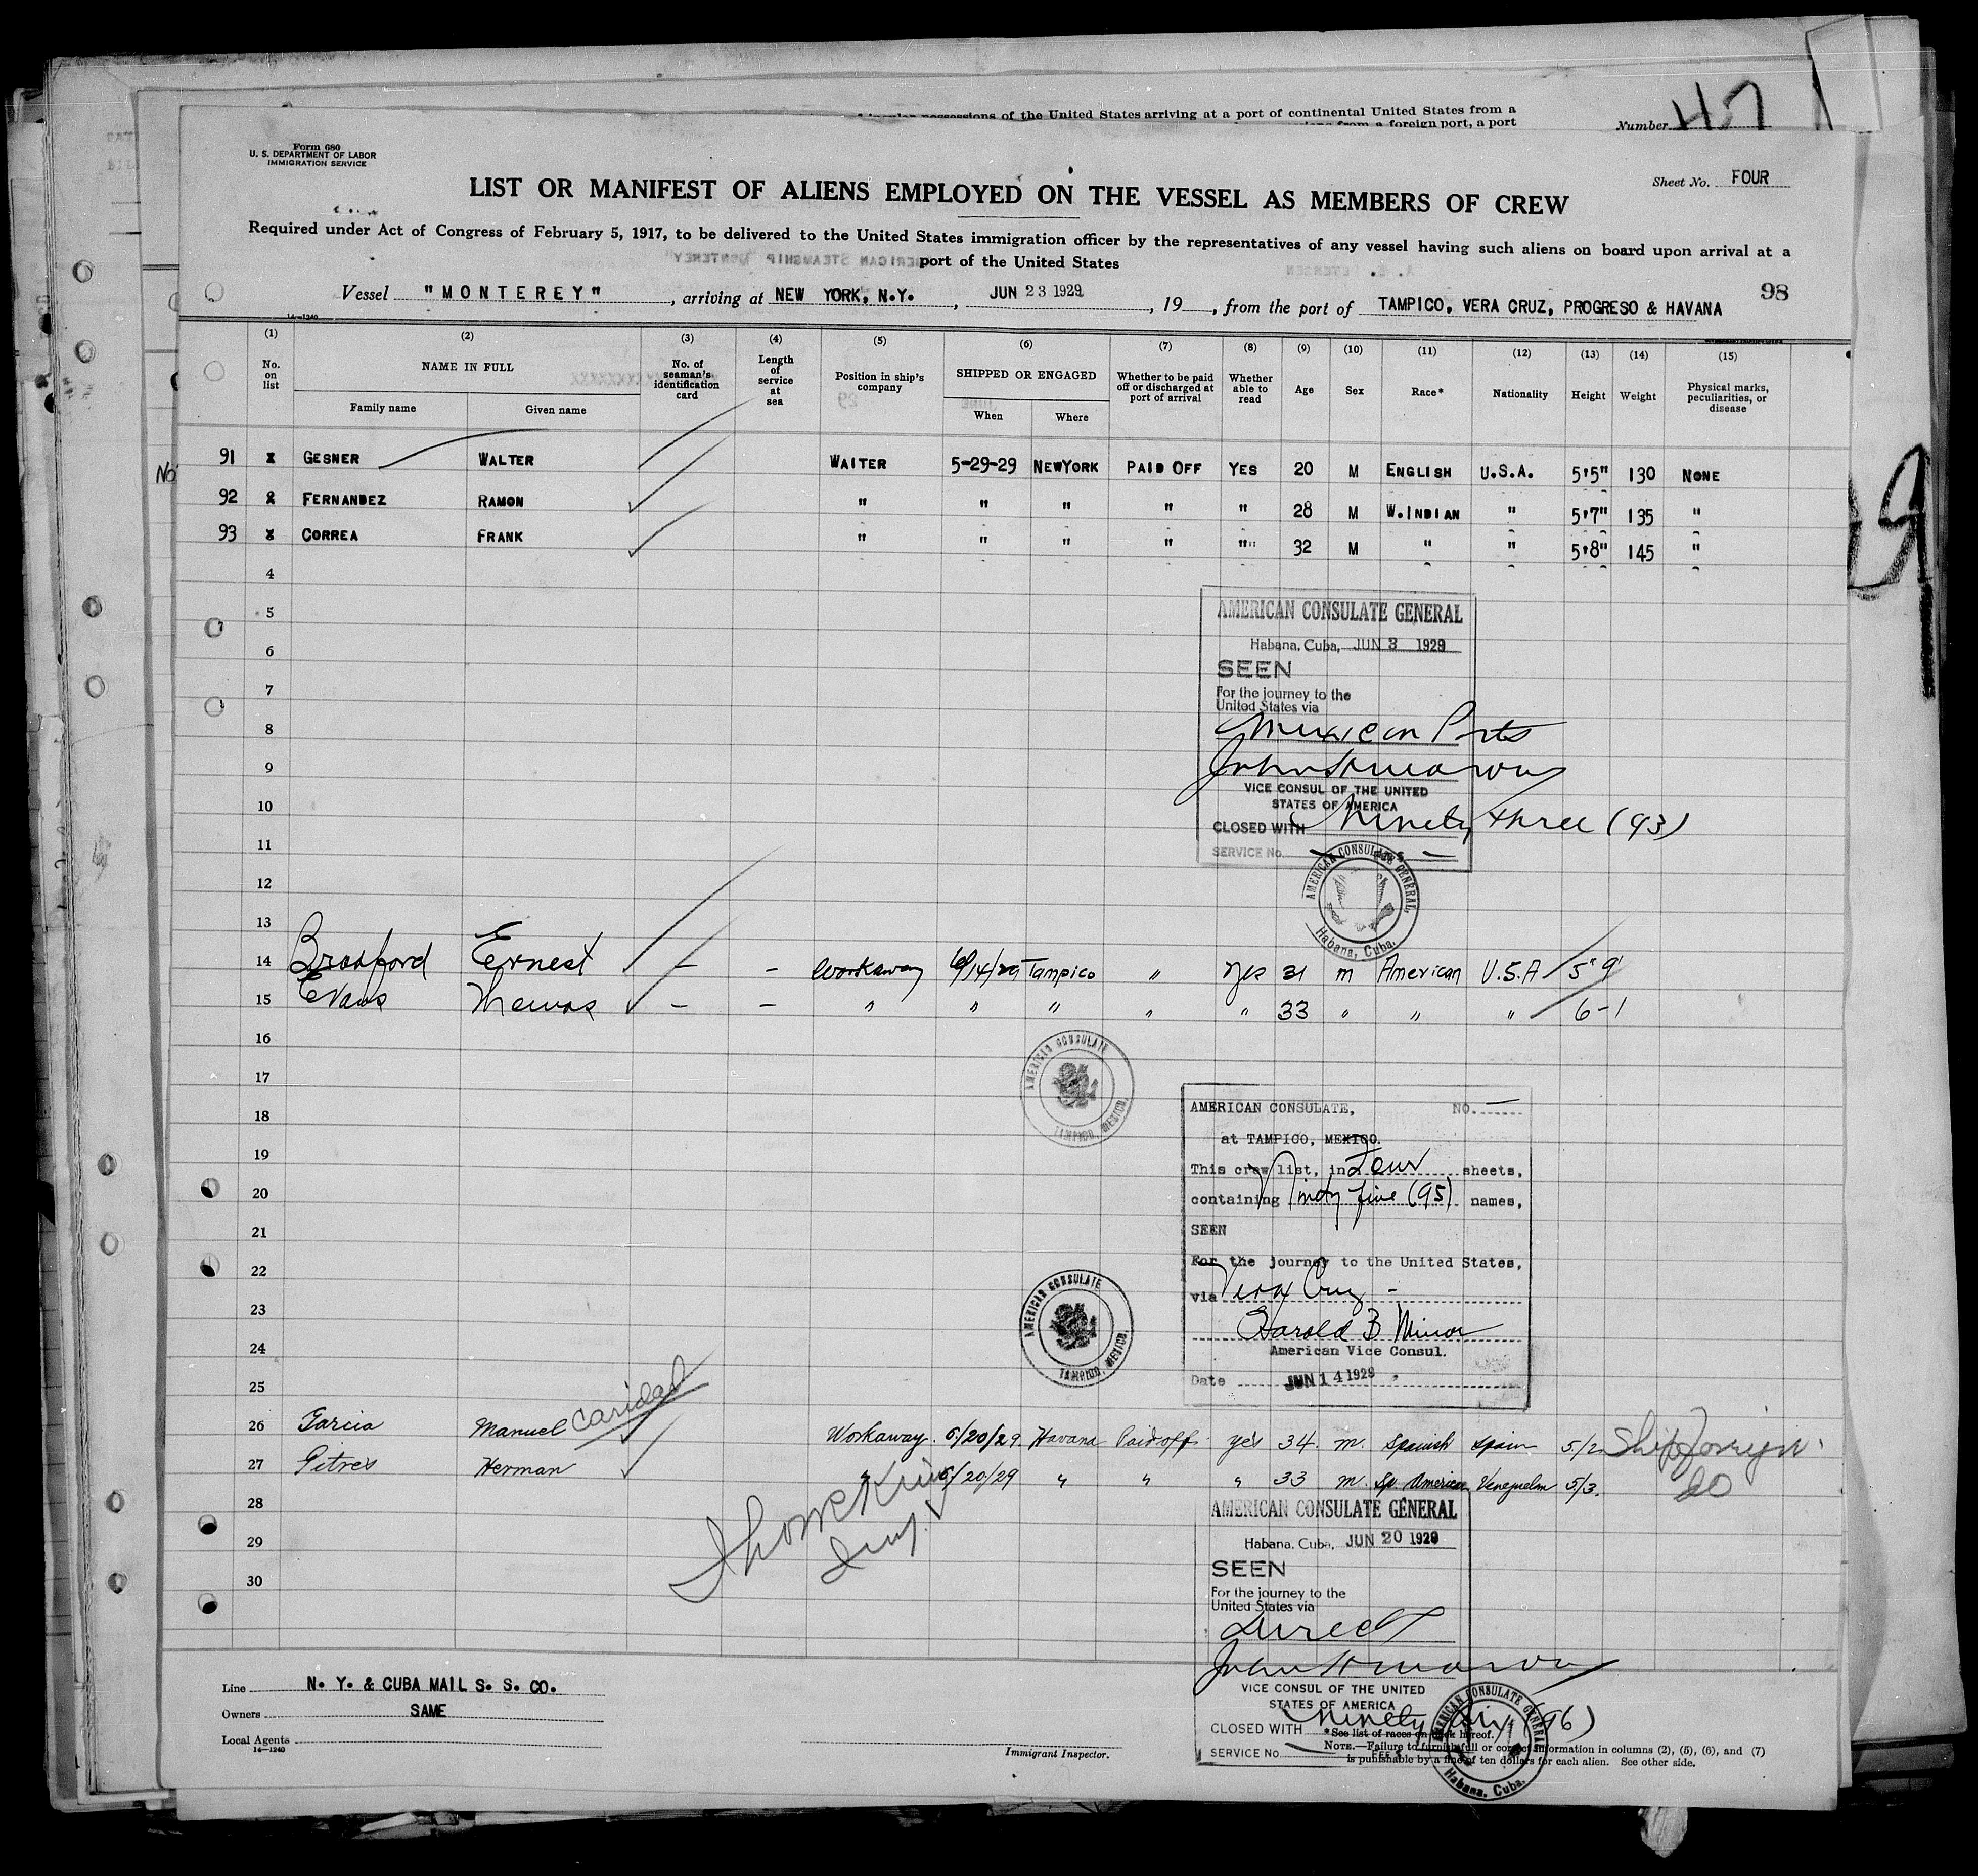 insular possessions of the United States arriving at a port of continental United States from a
from a foreign port, a port
Number 47
Form 680
U. S. DEPARTMENT OF LABOR
IMMIGRATION SERVICE
Sheet No. FOUR
LIST OR MANIFEST OF ALIENS EMPLOYED ON THE VESSEL AS MEMBERS OF CREW
Required under Act of Congress of February 5, 1917, to be delivered to the United States immigration officer by the representatives of any vessel having such aliens on board upon arrival at a
port of the United States
Vessel "MONTEREY", arriving at NEW YORK, N.Y., JUN 23 1929, 19, from the port of TAMPICO, VERA CRUZ, PROGRESO & HAVANA
98
14-1240
(1) (2) (3) (4) (5) (6) (7) (8) (9) (10) (11) (12) (13) (14) (15)
No. on list
NAME IN FULL
Family name
Given name
No. of seaman's identification card
Length of service at sea
Position in ship's company
SHIPPED OR ENGAGED
When
Where
Whether to be paid off or discharged at port of arrival
Whether able to read
Age
Sex
Race*
Nationality
Height
Weight
Physical marks, peculiarities, or disease
No
91 X GESNER WALTER WAITER 5-29-29 NEWYORK PAID OFF YES 20 M ENGLISH U.S.A. 5'5" 130 NONE
92 X FERNANDEZ RAMON " " " " " 28 M W.INDIAN " 5'7" 135 "
93 X CORREA FRANK " " " " " 32 M " " 5'8" 145 "
4
5
6
7
8
9
10
11
12
13
AMERICAN CONSULATE GENERAL
Habana, Cuba, JUN 3 1929
SEEN
For the journey to the
United States via
Mexican Ports
VICE CONSUL OF THE UNITED
STATES OF AMERICA
CLOSED WITH Ninety three (93)
SERVICE No.
AMERICAN CONSULATE GENERAL, Habana, Cuba.
14 Bradford Ernest - - Workaway 6/14/29 Tampico " yes 31 m American U.S.A 5'9"
15 Evans Thomas - - " " " " " 33 " " " 6-1
16
17
18
19
20
21
22
23
24
25
AMERICAN CONSULATE TAMPICO, MEXICO.
AMERICAN CONSULATE, NO. -
at TAMPICO, MEXICO.
This crew list, in Four sheets,
containing Ninety five (95) names,
SEEN
For the journey to the United States,
via Vera Cruz -
Harold B Minor
American Vice Consul.
Date JUN 14 1929
AMERICAN CONSULATE TAMPICO, MEXICO.
26 Garcia Manuel Caridad Workaway. 6/20/29 Havana Paid off yes 34. m. Spanish Spain 5/2
27 Herman " 6/20/29 " " " 33 m. Sp. American Venezuelan 5/3.
do
28
29
30
AMERICAN CONSULATE GENERAL
Habana, Cuba, JUN 20 1929
SEEN
For the journey to the
United States via
Direct
VICE CONSUL OF THE UNITED
STATES OF AMERICA
CLOSED WITH Ninety six (96)
SERVICE No. FEE $
AMERICAN CONSULATE GENERAL Habana, Cuba.
Line N. Y. & CUBA MAIL S. S. CO.
Owners SAME
Local Agents
14-1240
Immigrant Inspector.
*See list of races on back hereof.
NOTE.—Failure to furnish full or correct information in columns (2), (5), (6), and (7)
is punishable by a fine of ten dollars for each alien. See other side.